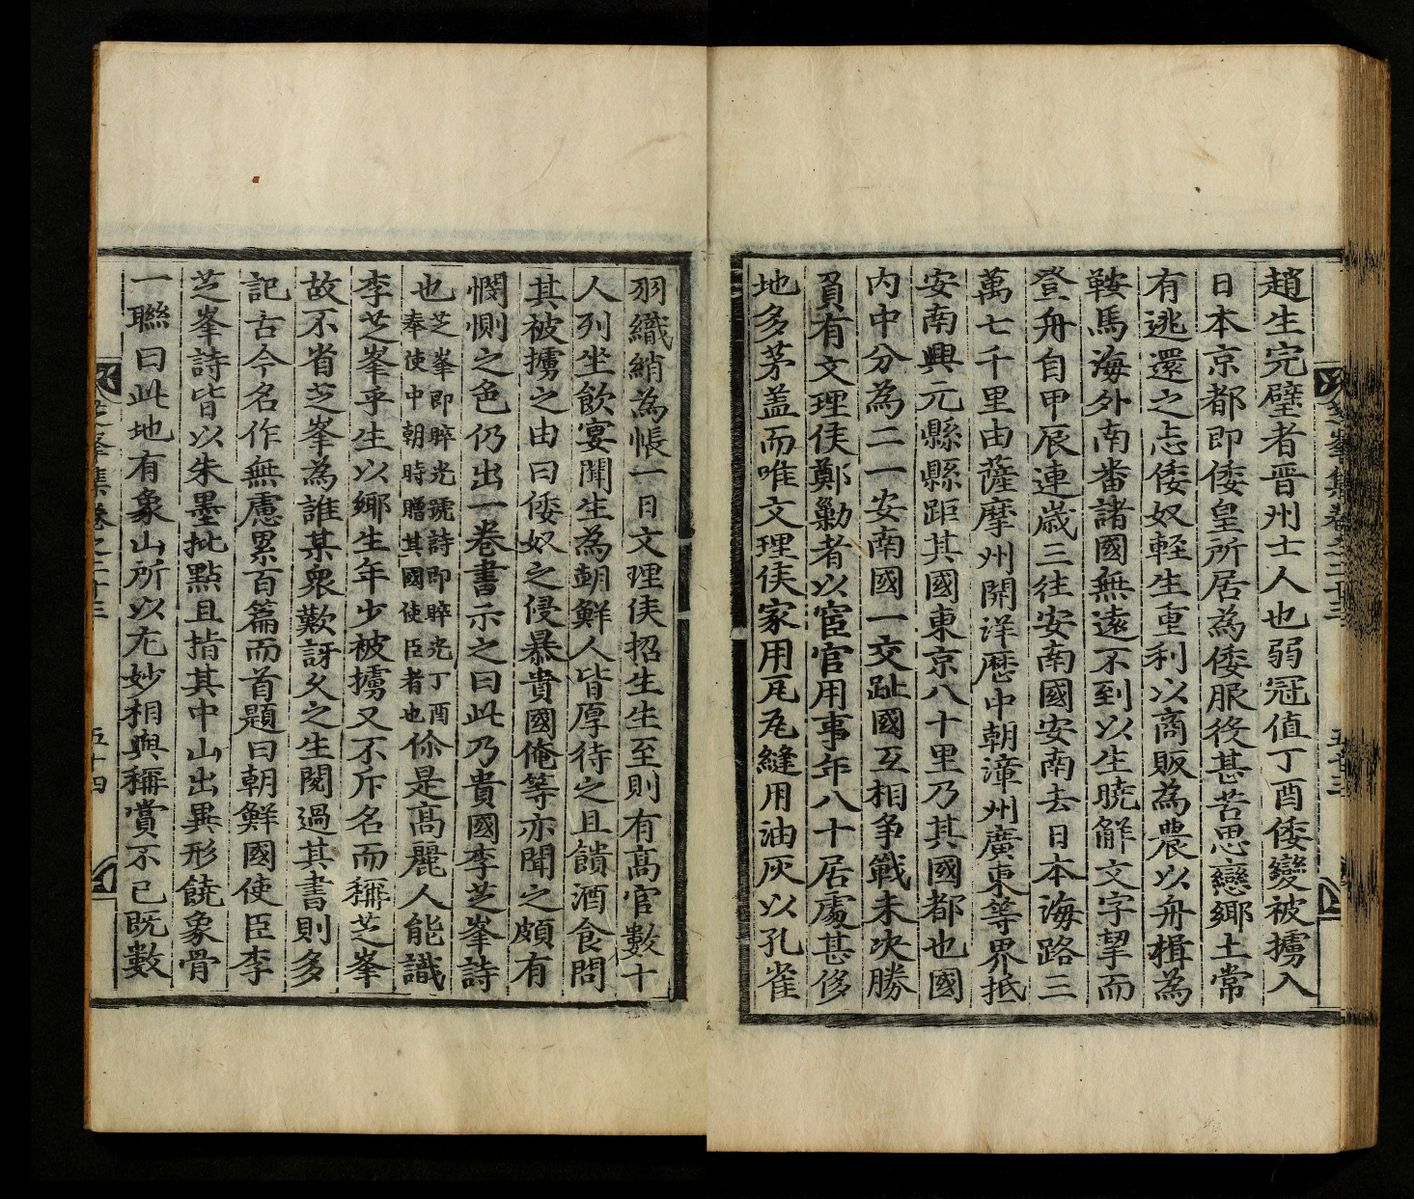 趙生完璧者晋州士人也弱冠值丁酉倭變被擄入
日本京都即倭皇所居為倭服役甚苦思戀鄉土常
有逃還之志倭奴輕生重利以商販為農以舟楫為
鞍馬海外南番諸國無遠不到以生曉觧文字挈而
登舟自甲辰連歲三往安南國安南去日本海路三
萬七千里由薩摩州開洋歷中朝漳州廣東等界抵
安南興元縣縣距其國東京八十里乃其國都也國
内中分為二一安南國一交趾國互相争戰未决勝
負有文理侯鄭勦者以宦官用事年八十居處甚侈
地多茅盖而唯文理侯家用瓦瓦縫用油灰以孔雀
羽織綃為帳一日文理侯招生生至則有高官數十
人列坐飲宴聞生為朝鮮人皆厚待之且饋酒食問
其被擄之由曰倭奴之侵暴貴國俺等亦聞之頗有
憫惻之色仍出一卷書示之曰此乃貴國李芝峯詩
也芝峯即睟光號詩即睟光丁酉奉使中朝時贈其國使臣者也你是高麗人能識
李芝峯乎生以鄉生年少被擄又不斥名而稱芝峯
故不省芝峯為誰某衆歎訝久之生閱過其書則多
記古今名作無慮累百篇而首題曰朝鮮國使臣李
芝峯詩皆以朱墨批點且指其中山出異形饒象骨
一聯曰此地有象山所以尤妙相與稱賞不已既數
芝峯集卷之二十三
五十四